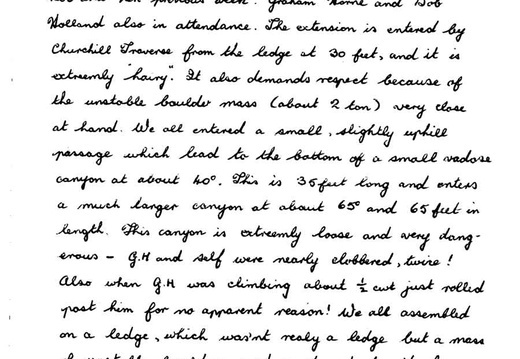 previous week. Graham Horne and Bob
Holland also in attendance. The extension is entered by
Churchill Traverse from the ledge at 30 feet, and it is
extreemly "hairy". It also demands respect because of
the unstable boulder mass (about 2 ton) very close
at hand. We all entered a small, slightly uphill
passage which lead to the bottom of a small vadose
canyon at about 40°. This is 35 feet long and enters
a much larger canyon at about 65° and 65 feet in
length. This canyon is extreemly loose and very dang-
erous - G.H and self were nearly clobbered, twice!
Also when G.H was climbing about ½ cwt just rolled
past him for no apparent reason! We all assembled
on a ledge, which was'nt realy a ledge but a mass